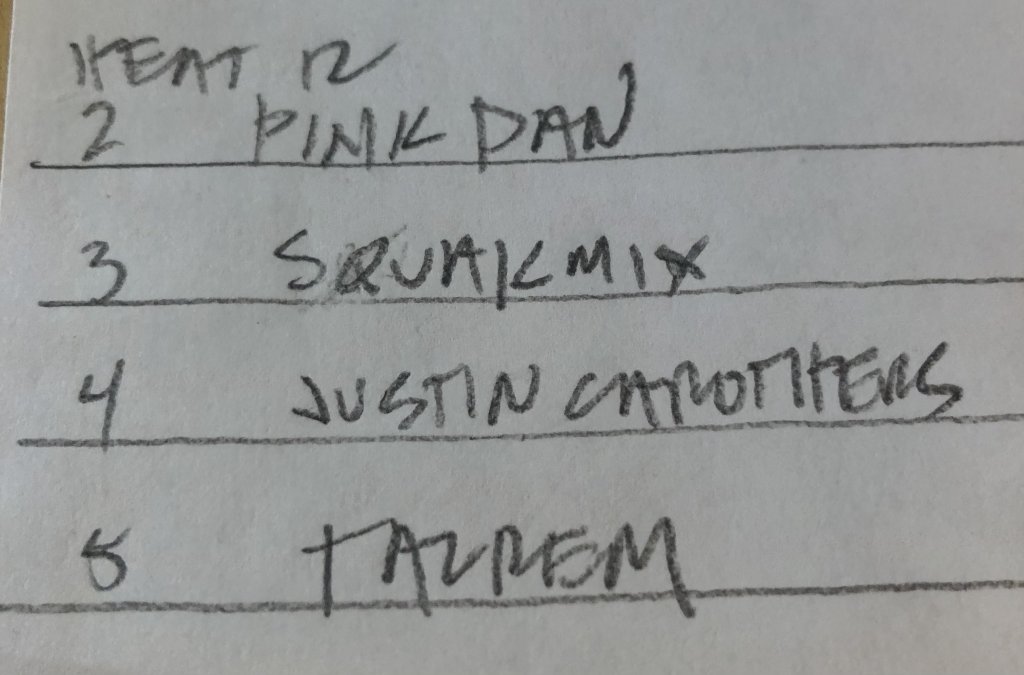 HEAT 12
2 PINK DAN
3 SQUAKMIX
4 JUSTIN CAROTHERS
5 TAZREM